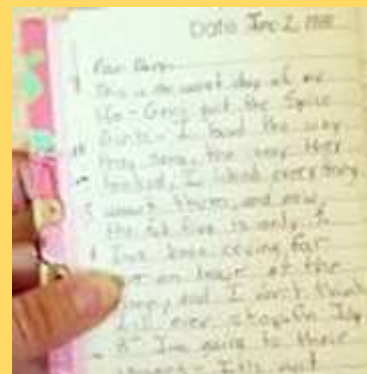 Date June 2, 1998
Dear Diary,
This is the worst day of my
life - Geri quit the Spice
Girls - I loved the way
they sang, the way they
looked, I liked everything
about them, and now
the fab five is only 4
I've been crying for
over an hour at the
and I don't think
I'll ever stop. On July
I'm going to their
concert - It's not